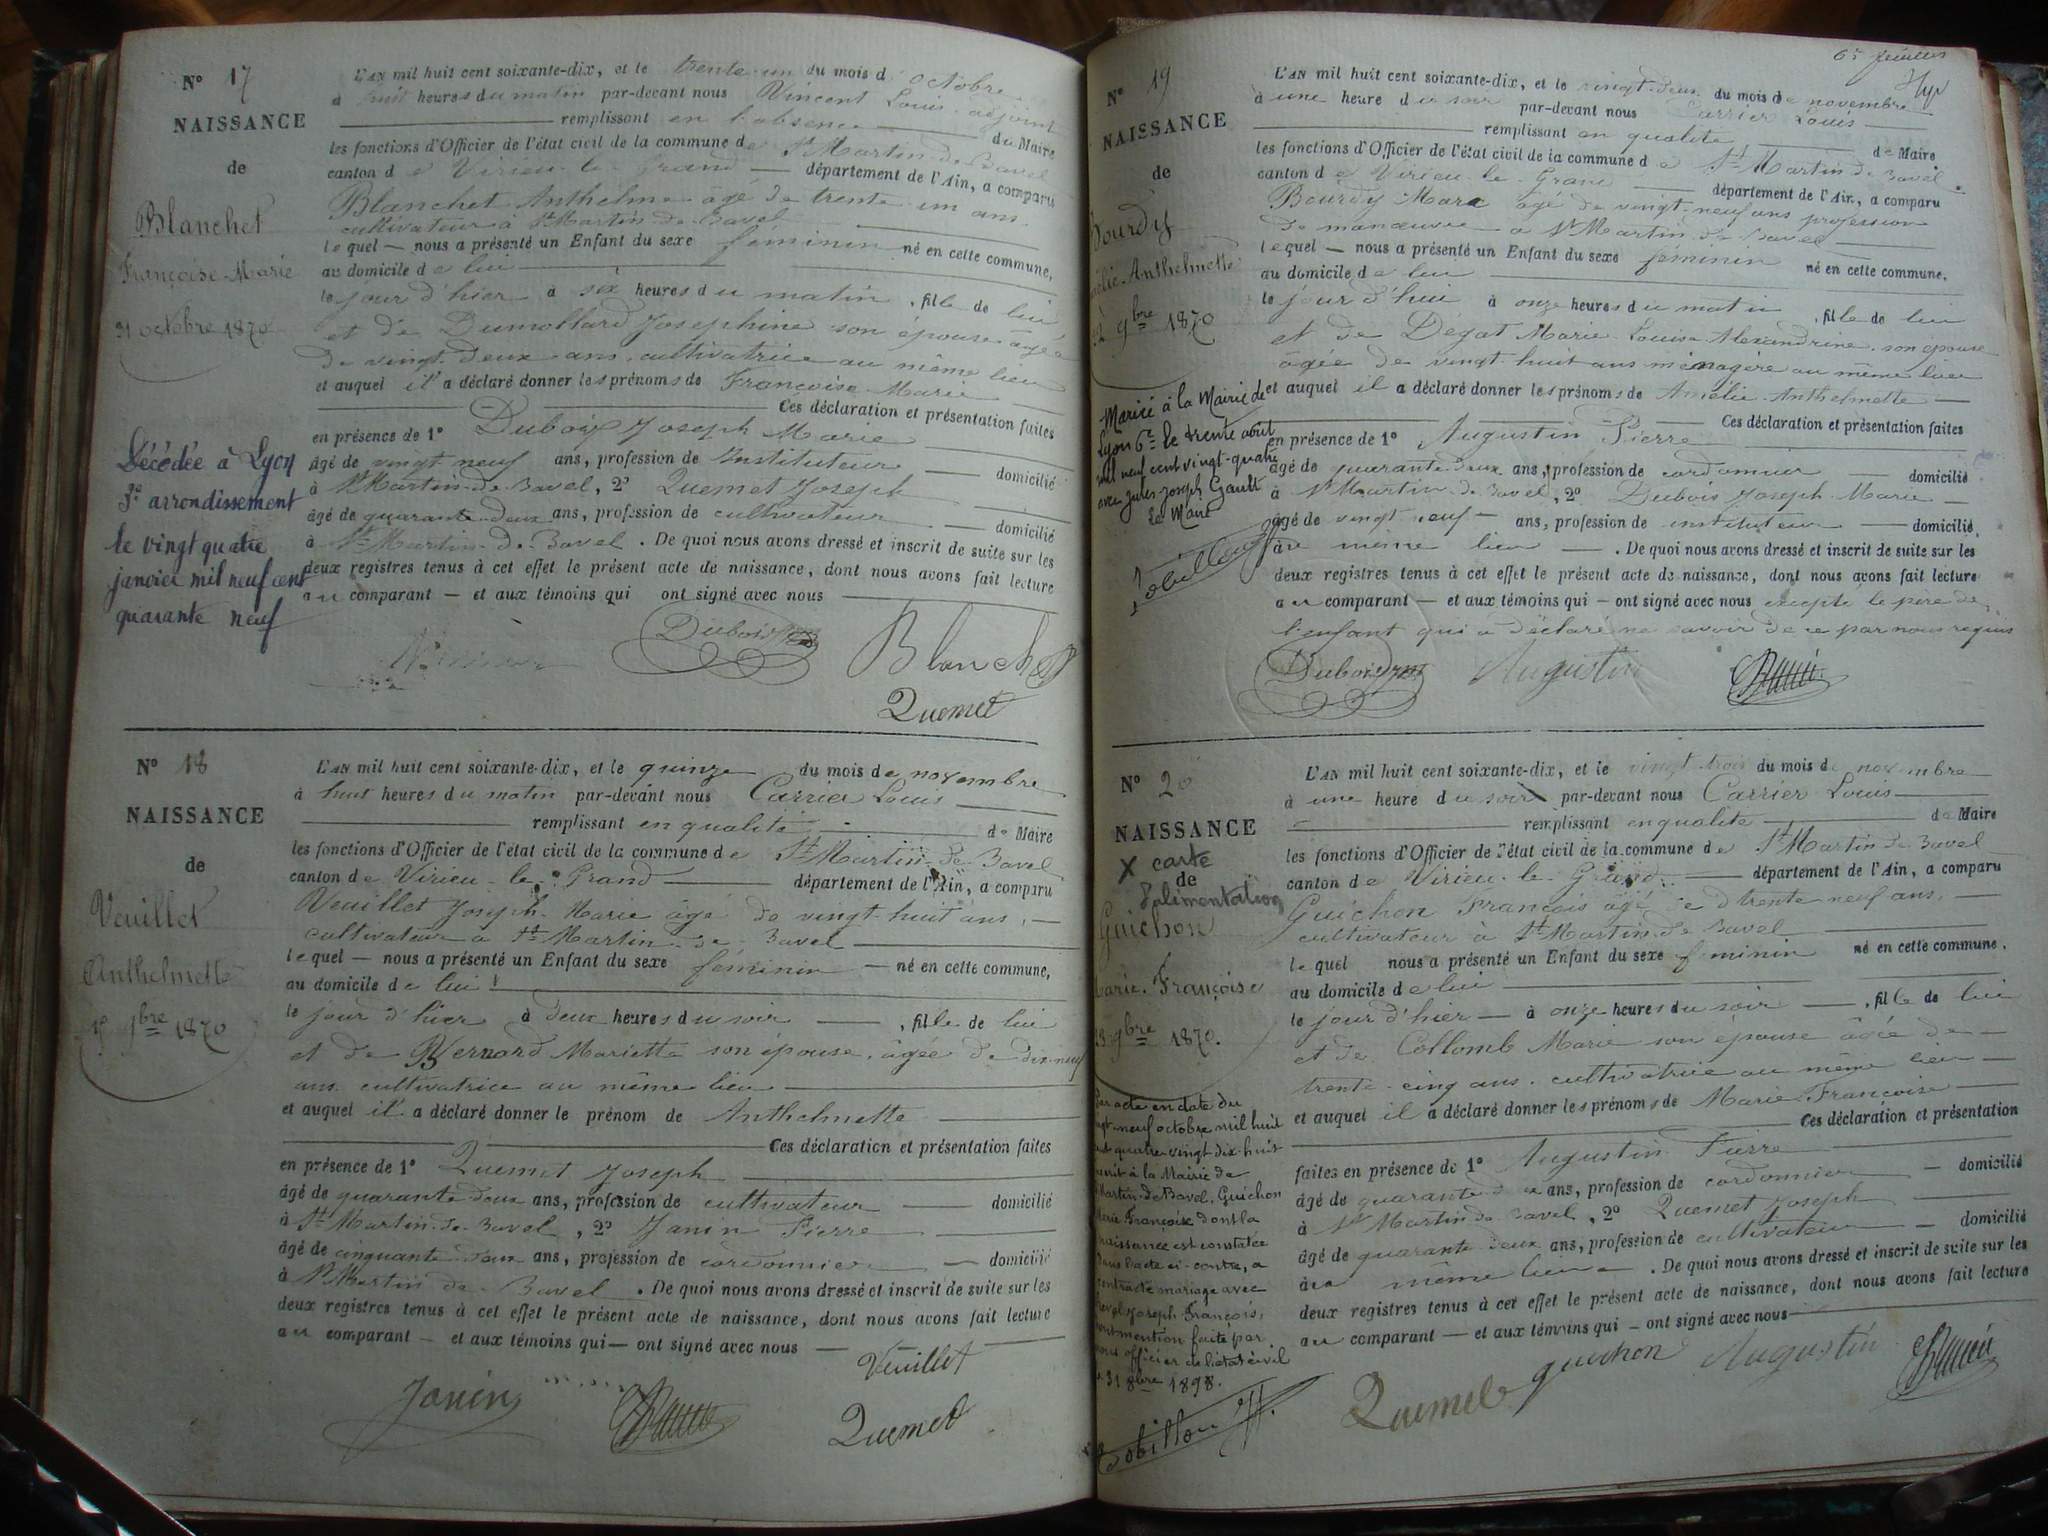 N° 17
NAISSANCE
de
Blanchet
Françoise-Marie
31 octobre 1870
Décédée à Lyon
3e arrondissement
le vingt quatre
janvier mil neuf cent
quarante neuf
L'AN mil huit cent soixante-dix, et le trente-un du mois d'octobre
à huit heures du matin par-devant nous Vincent Louis adjoint
remplissant en l'absence du Maire
les fonctions d'Officier de l'état civil de la commune de St Martin-de-Bavel
canton de Virieu-le-Grand département de l'Ain, a comparu
Blanchet Anthelme âgé de trente un ans
cultivateur à St Martin-de-Bavel
lequel nous a présenté un Enfant du sexe féminin né en cette commune,
au domicile de lui
le jour d'hier à six heures du matin, fille de lui
et de Dumollard Josephine son épouse âgée
de vingt-deux ans, cultivatrice au même lieu
et auquel il a déclaré donner les prénoms de Françoise-Marie
Ces déclaration et présentation faites
en présence de 1° Dubois Joseph Marie
âgé de vingt neuf ans, profession de Instituteur domicilié
à St Martin-de-Bavel, 2° Quemet Joseph
âgé de quarante-deux ans, profession de cultivateur domicilié
à St Martin-de-Bavel. De quoi nous avons dressé et inscrit de suite sur les
deux registres tenus à cet effet le présent acte de naissance, dont nous avons fait lecture
au comparant et aux témoins qui ont signé avec nous
Dubois Blanchet
Quemet
N° 18
NAISSANCE
de
Veuillet
Anthelmette
9bre 1870
L'AN mil huit cent soixante-dix, et le quinze du mois de novembre
à huit heures du matin par-devant nous Carrier Louis
remplissant en qualité de Maire
les fonctions d'Officier de l'état civil de la commune de St Martin-de-Bavel
canton de Virieu-le-Grand département de l'Ain, a comparu
Veuillet Joseph-Marie âgé de vingt-huit ans,
cultivateur à St Martin-de-Bavel
lequel nous a présenté un Enfant du sexe féminin né en cette commune,
au domicile de lui
le jour d'hier à deux heures du soir, fille de lui
et de Bernard Mariette son épouse, âgée de dix-neuf
ans cultivatrice au même lieu
et auquel il a déclaré donner le prénom de Anthelmette
Ces déclaration et présentation faites
en présence de 1° Quemet Joseph
âgé de quarante deux ans, profession de cultivateur domicilié
à St Martin-de-Bavel, 2° Janin Pierre
âgé de cinquante deux ans, profession de cordonnier domicilié
à St Martin-de-Bavel. De quoi nous avons dressé et inscrit de suite sur les
deux registres tenus à cet effet le présent acte de naissance, dont nous avons fait lecture
au comparant et aux témoins qui ont signé avec nous
Veuillet
Janin Quemet
6e feuillet
N° 19
NAISSANCE
de
Bourdy
Amélie-Anthelmette
22 9bre 1870
Mariée à la Mairie de
Lyon 6e le trente août
mil neuf cent vingt-quatre
avec Jules Joseph Gault
Le Maire
L'AN mil huit cent soixante-dix, et le vingt-deux du mois de novembre
à une heure du soir par-devant nous Carrier Louis
remplissant en qualité de Maire
les fonctions d'Officier de l'état civil de la commune de St Martin-de-Bavel
canton de Virieu-le-Grand département de l'Ain, a comparu
Bourdy Marc âgé de vingt-neuf ans profession
de manœuvre à St Martin-de-Bavel
lequel nous a présenté un Enfant du sexe féminin né en cette commune,
au domicile de lui
le jour d'hui à onze heures du matin, fille de lui
et de Dégat Marie Louise Alexandrine son épouse
âgée de vingt-huit ans ménagère au même lieu
et auquel il a déclaré donner les prénoms de Amélie-Anthelmette
Ces déclaration et présentation faites
en présence de 1° Augustin Pierre
âgé de quarante deux ans, profession de cordonnier domicilié
à St Martin-de-Bavel, 2° Dubois Joseph-Marie
âgé de vingt neuf ans, profession de instituteur domicilié
au même lieu. De quoi nous avons dressé et inscrit de suite sur les
deux registres tenus à cet effet le présent acte de naissance, dont nous avons fait lecture
au comparant et aux témoins qui ont signé avec nous excepté le père de
l'enfant qui a déclaré ne savoir de ce par nous requis
Dubois Augustin
N° 20
NAISSANCE
X carte
de
d'alimentation
Guichon
Marie-Françoise
23 9bre 1870.
Par acte en date du
vingt-neuf octobre mil huit
cent quatre-vingt dix-huit
à la Mairie de
St Martin-de-Bavel, Guichon
Marie Françoise dont la
naissance est constatée
dans l'acte ci-contre, a
contracté mariage avec
Joseph François,
dont mention faite par
nous officier de l'état civil
le 31 8bre 1898.
L'AN mil huit cent soixante-dix, et le vingt trois du mois de novembre
à une heure du soir par-devant nous Carrier Louis
remplissant en qualité de Maire
les fonctions d'Officier de l'état civil de la commune de St Martin-de-Bavel
canton de Virieu-le-Grand département de l'Ain, a comparu
Guichon François âgé de trente neuf ans,
cultivateur à St Martin-de-Bavel
lequel nous a présenté un Enfant du sexe féminin né en cette commune,
au domicile de lui
le jour d'hier à onze heures du soir, fille de lui
et de Collomb Marie son épouse âgée de
trente-cinq ans, cultivatrice au même lieu
et auquel il a déclaré donner les prénoms de Marie Françoise
Ces déclaration et présentation
faites en présence de 1° Augustin Pierre
âgé de quarante deux ans, profession de cordonnier domicilié
à St Martin-de-Bavel, 2° Quemet Joseph
âgé de quarante deux ans, profession de cultivateur domicilié
au même lieu. De quoi nous avons dressé et inscrit de suite sur les
deux registres tenus à cet effet le présent acte de naissance, dont nous avons fait lecture
au comparant et aux témoins qui ont signé avec nous
Quemet guichon Augustin